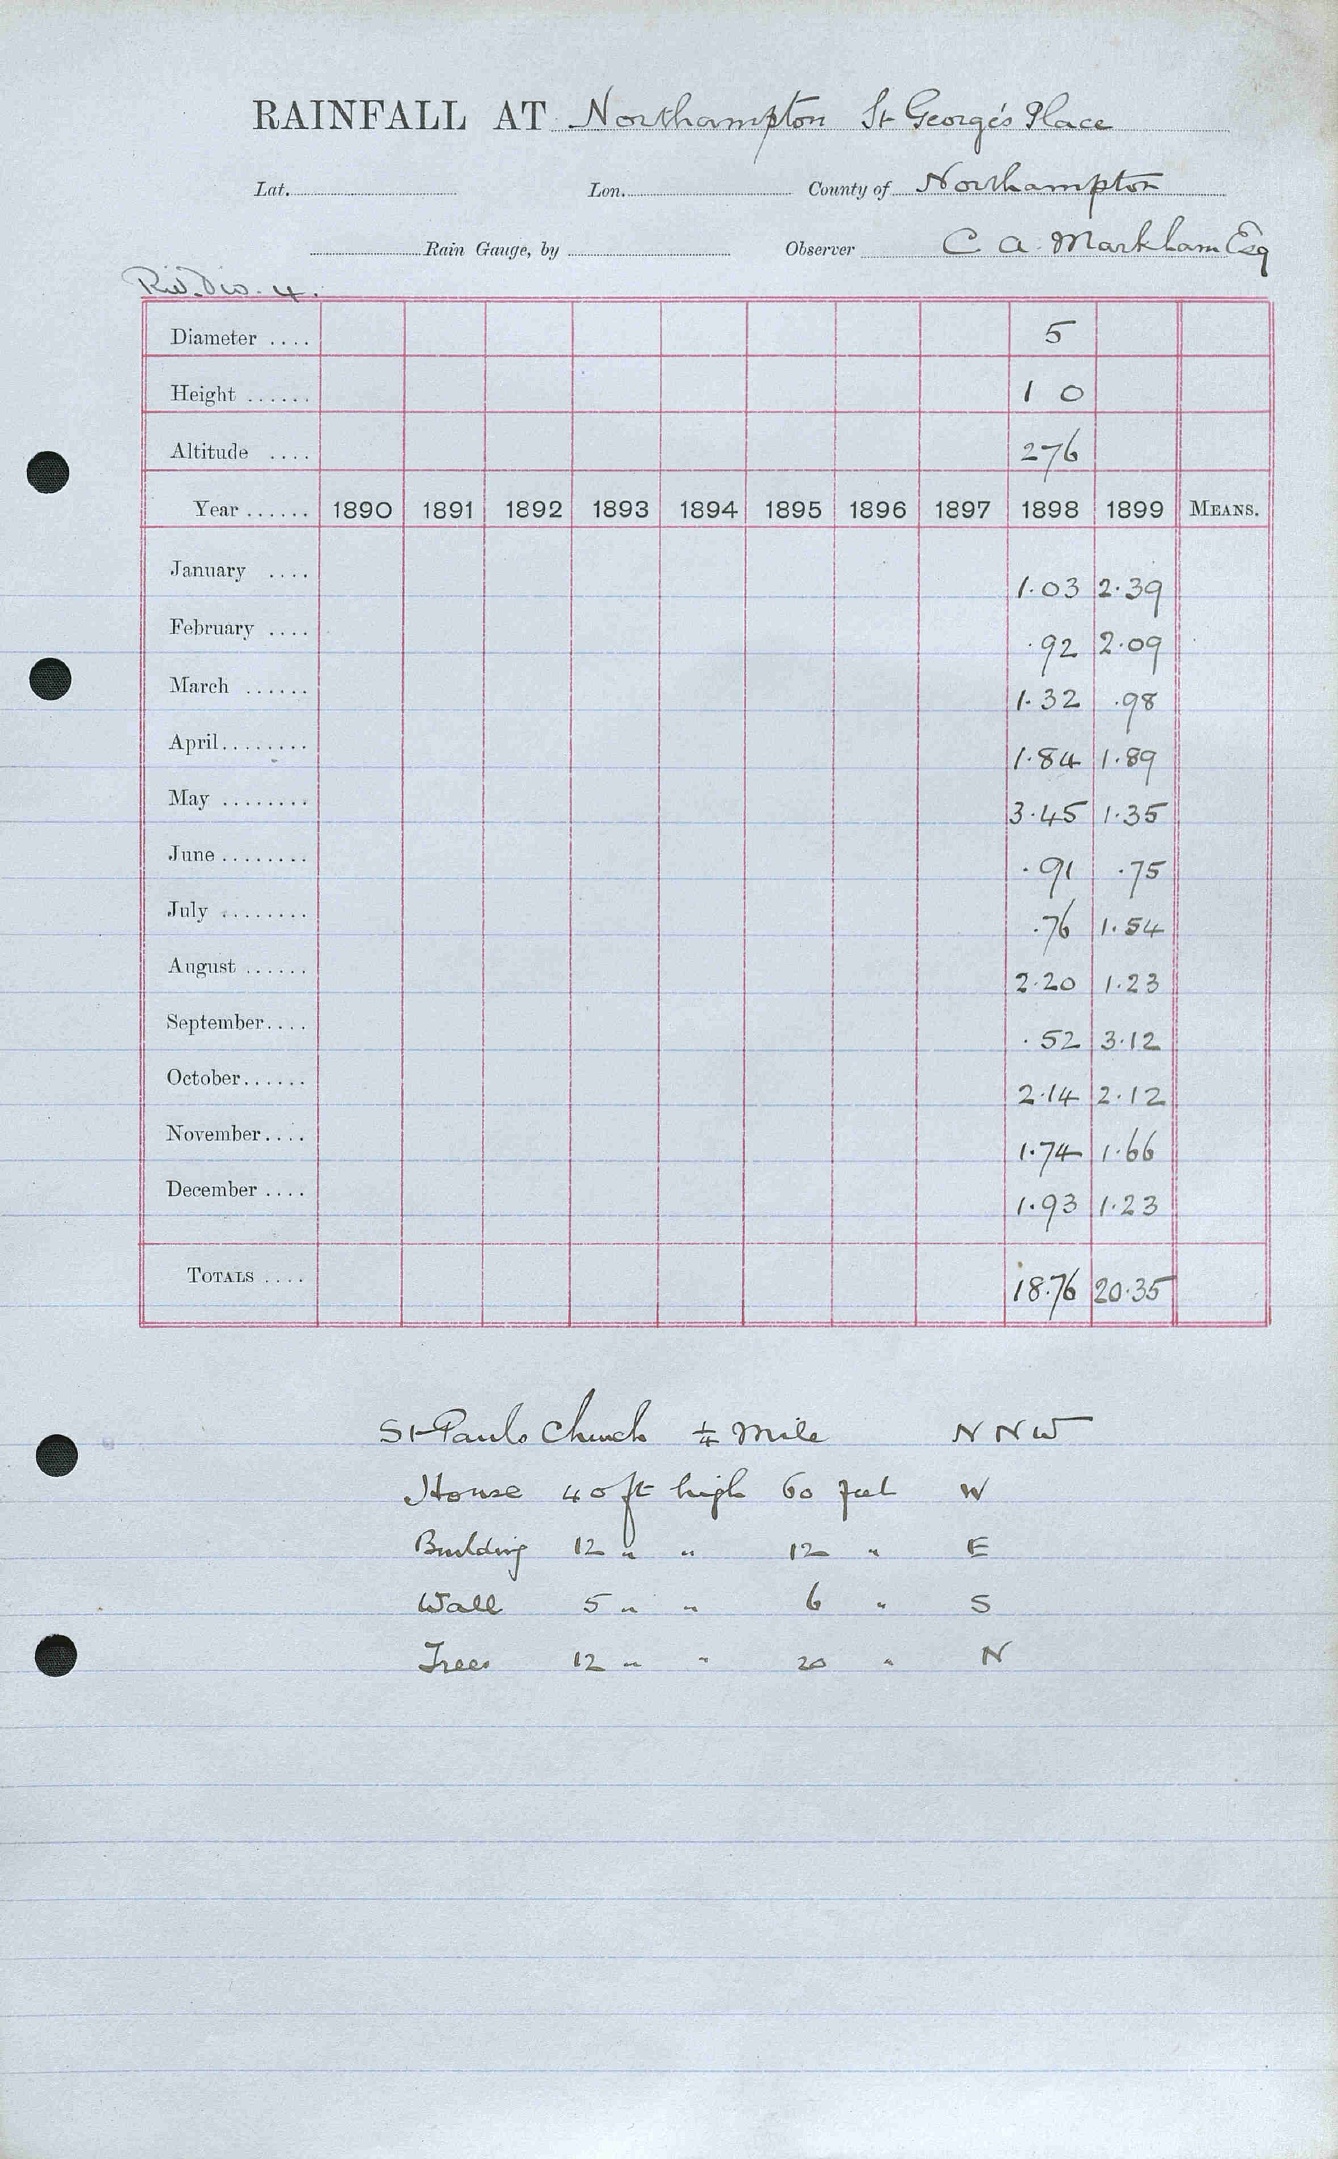 RAINFALL AT Northampton St George's Place
Lat. Lon. County of Northampton
Rain Gauge, by Observer C A Markham Esq
Riv. Div. 4.
Diameter .... 5
Height ...... 1 0
Altitude .... 276
Year ...... 1890 1891 1892 1893 1894 1895 1896 1897 1898 1899 MEANS.
January .... 1.03 2.39
February .... .92 2.09
March ...... 1.32 .98
April........ 1.84 1.89
May ........ 3.45 1.35
June ........ .91 .75
July ........ .76 1.54
August ...... 2.20 1.23
September.... .52 3.12
October...... 2.14 2.12
November.... 1.74 1.66
December .... 1.93 1.23
TOTALS .... 18.76 20.35
St Pauls Church ¼ Mile N N W
House 40 ft high 60 feet W
Building 12 " " 12 " E
Wall 5 " " 6 " S
Trees 12 " " 20 " N